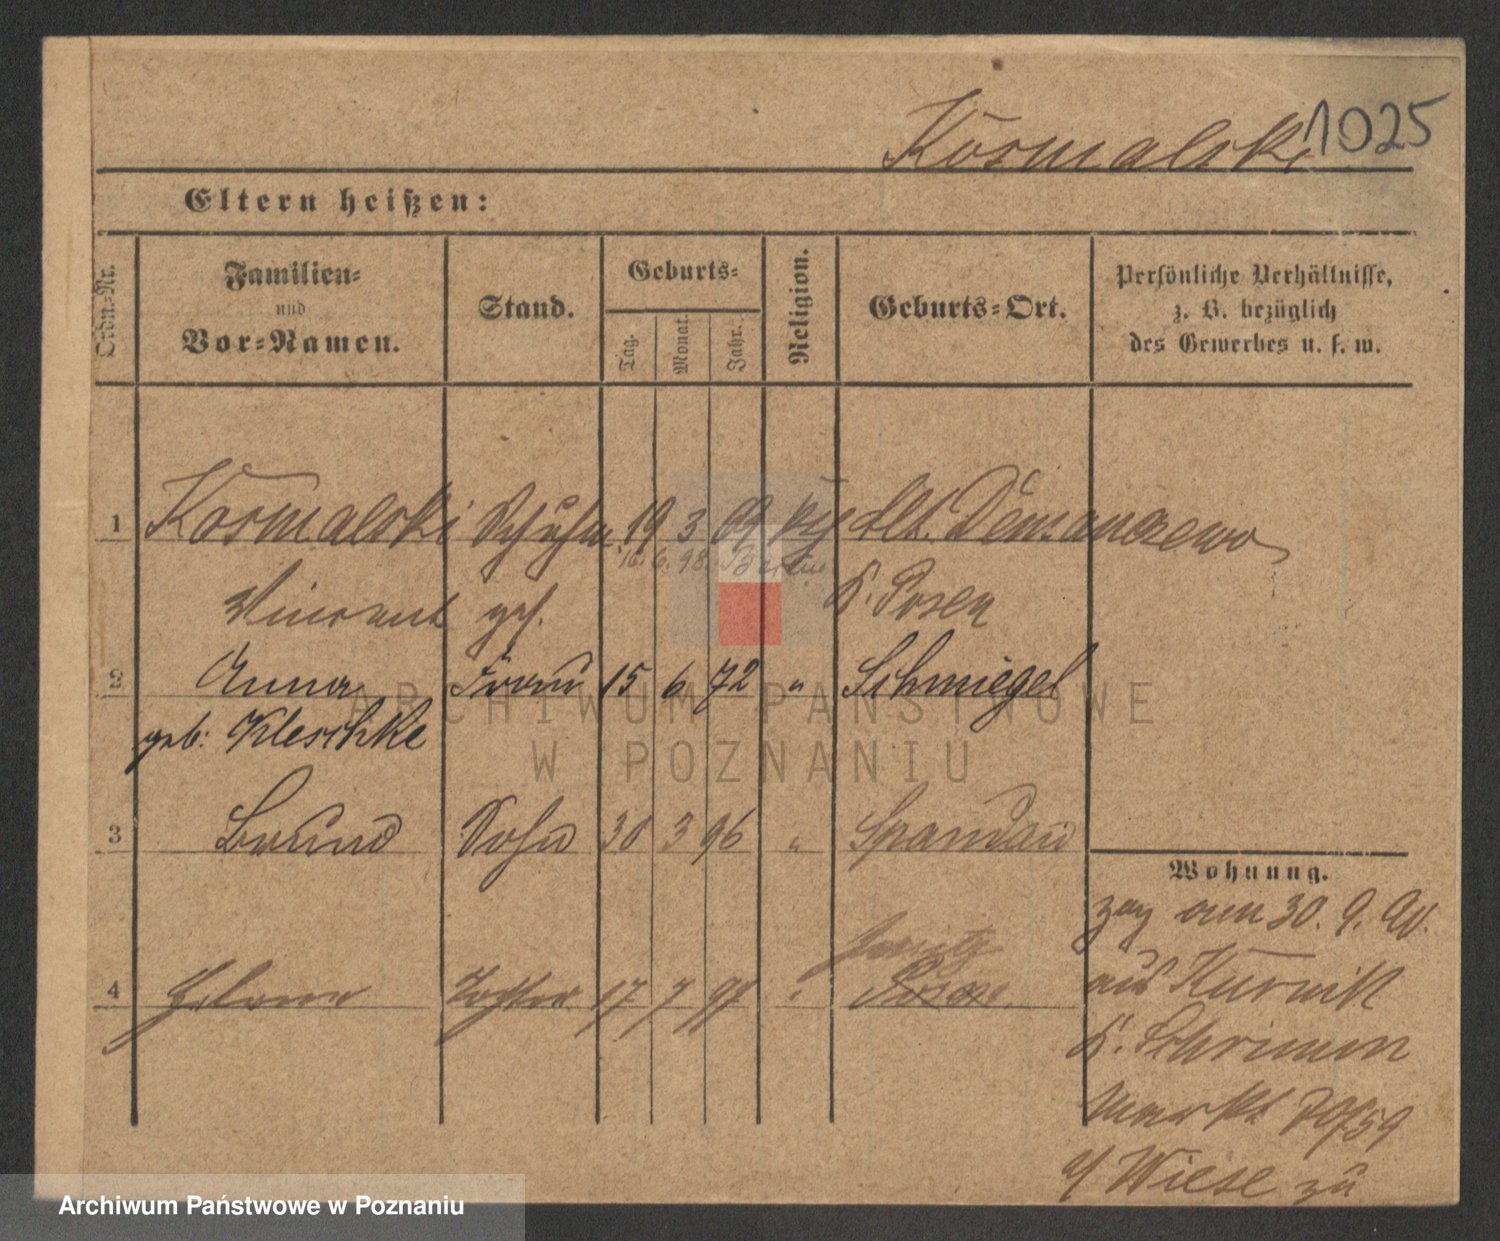 Kosmalski 1025
Eltern heißen:
Ordn.-Nr.
Familien-
und
Vor-Namen.
Stand.
Geburts-
Tag.
Monat.
Jahr.
Religion.
Geburts-Ort.
Persönliche Verhältnisse,
z. B. bezüglich
des Gewerbes u. s. w.
1 Kosmalski Schuhm. 19 3 69 Dt. Demanczewo
16. 6. 98. Berlin
Vincent K. Posen
2 Anna Frau 15 6 72 " Schmiegel
geb: Kleschke
3 Bruno Sohn 30 3 96 " Spandau
4 Helene Tochter 17 7 97 " Posen
Wohnung.
zog am 30. 9. 90.
aus Kurnik
K. Schrimm
Markt 59
Wiese zu
ARCHIWUM PAŃSTWOWE
W POZNANIU
Archiwum Państwowe w Poznaniu